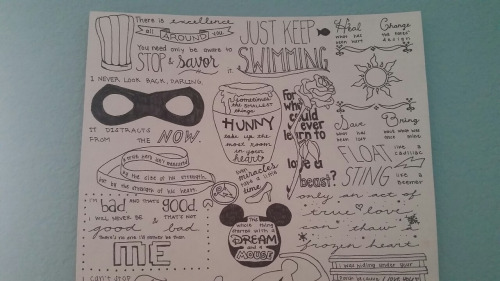 There is excellence
all AROUND you.
You need only be aware to
STOP & savor
it.
JUST KEEP
SWIMMING
Heal
what has
been hurt
Change
the fates'
design
I NEVER LOOK BACK, DARLING.
IT DISTRACTS
FROM THE NOW.
Sometimes
the SMALLEST
things
HUNNY
take up the
most room
in your
heart
For
who
could
ever
learn to
love a
beast?
Save
what has
been lost
Bring
back what once
was mine
FLOAT like a
cadillac
STING like a
beemer
a true hero isn't measured
by the size of his strength,
but by the strength of his heart.
even
miracles
take a little
time
I'm bad AND THAT'S good.
I WILL NEVER BE
good & THAT'S NOT
bad
There's no one I'd rather be than
ME
The
whole thing
started with a
DREAM
and a
MOUSE
only an act of
true love
can thaw a
frozen heart
I was hiding under your
because I love you
I CAN'T STOP